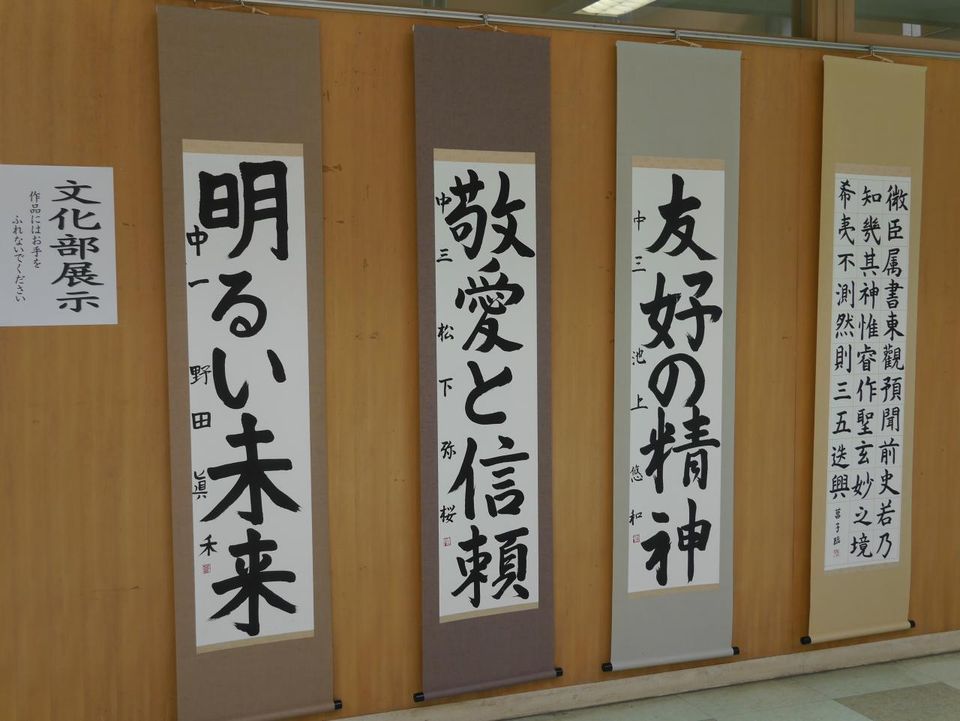 文化部展示
作品にはお手を
ふれないでください
明るい未来
中一 野田 眞禾
敬愛と信頼
中三 松下 弥桜
友好の精神
中三 池上 悠和
微臣属書東觀預聞前史若乃
知幾其神惟睿作聖玄妙之境
希夷不測然則三五迭興